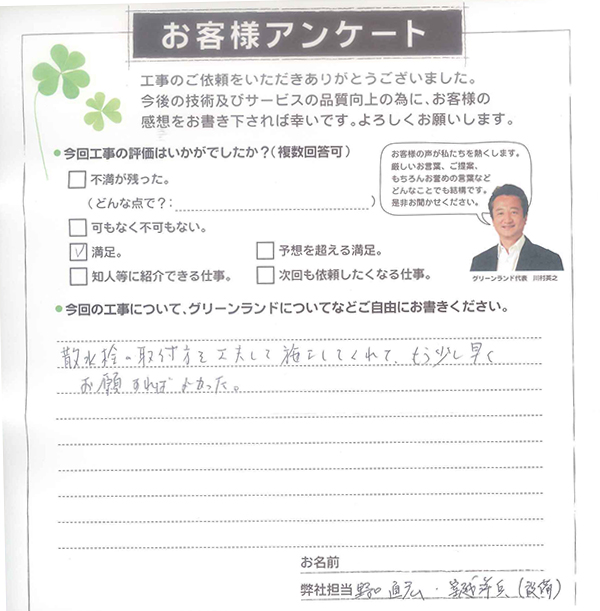 お客様アンケート
工事のご依頼をいただきありがとうございました。
今後の技術及びサービスの品質向上の為に、お客様の
感想をお書き下されば幸いです。よろしくお願いします。
●今回工事の評価はいかがでしたか？（複数回答可）
不満が残った。
（どんな点で？：）
可もなく不可もない。
満足。
予想を超える満足。
知人等に紹介できる仕事。
次回も依頼したくなる仕事。
お客様の声が私たちを熱くします。
厳しいお言葉、ご提案、
もちろんお誉めの言葉など
どんなことでも結構です。
是非お聞かせください。
グリーンランド代表 川村英之
●今回の工事について、グリーンランドについてなどご自由にお書きください。
散水栓の取付方を工夫して施工してくれて、もう少し早く
お願すればよかった。
お名前
弊社担当 直広・（設備）